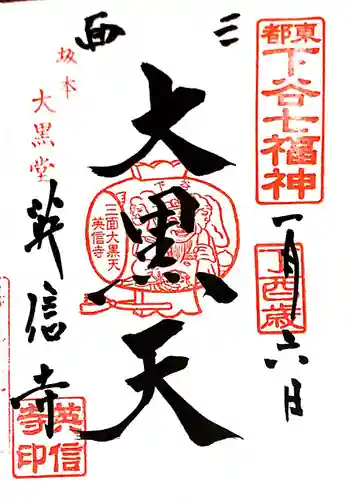 三面
東都
下谷七福神
一月六日
丁酉歳
大黒天
下谷
三面大黒天
英信寺
坂本
大黒堂
英信寺
英信
寺印